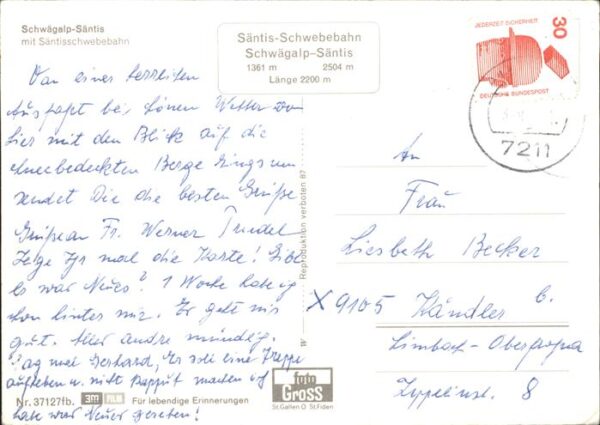 Schwägalp-Säntis
mit Säntisschwebebahn
Säntis-Schwebebahn
Schwägalp-Säntis
1361 m 2504 m
Länge 2200 m
JEDERZEIT SICHERHEIT
30
DEUTSCHE BUNDESPOST
7211
Von einer herrlichen
bei schönen Wetter von
hier mit den Blick auf die
schneebedeckten Berge rings um
sendet Die die besten Grüße
Grüße an Fr. Werner
Zeige Ihr mal die Karte! Gibt
es was Neues? 1 Woche habe ich
schon hinter mir. Es geht mir
gut. Alles andre mündlich.
Sag mal Gerhard, Er soll eine Treppe
aufheben u. nicht kaputt machen ich
habe was Neues gesehen!
An
Frau
Liesbeth Becker
X 9105 Kändler b.
Limbach-Oberfrohna
Zeppelinst. 8
Reproduktion verboten 87
W
Nr. 37127fb. 3m Für lebendige Erinnerungen
foto
GROSS
St.Gallen O St.Fiden